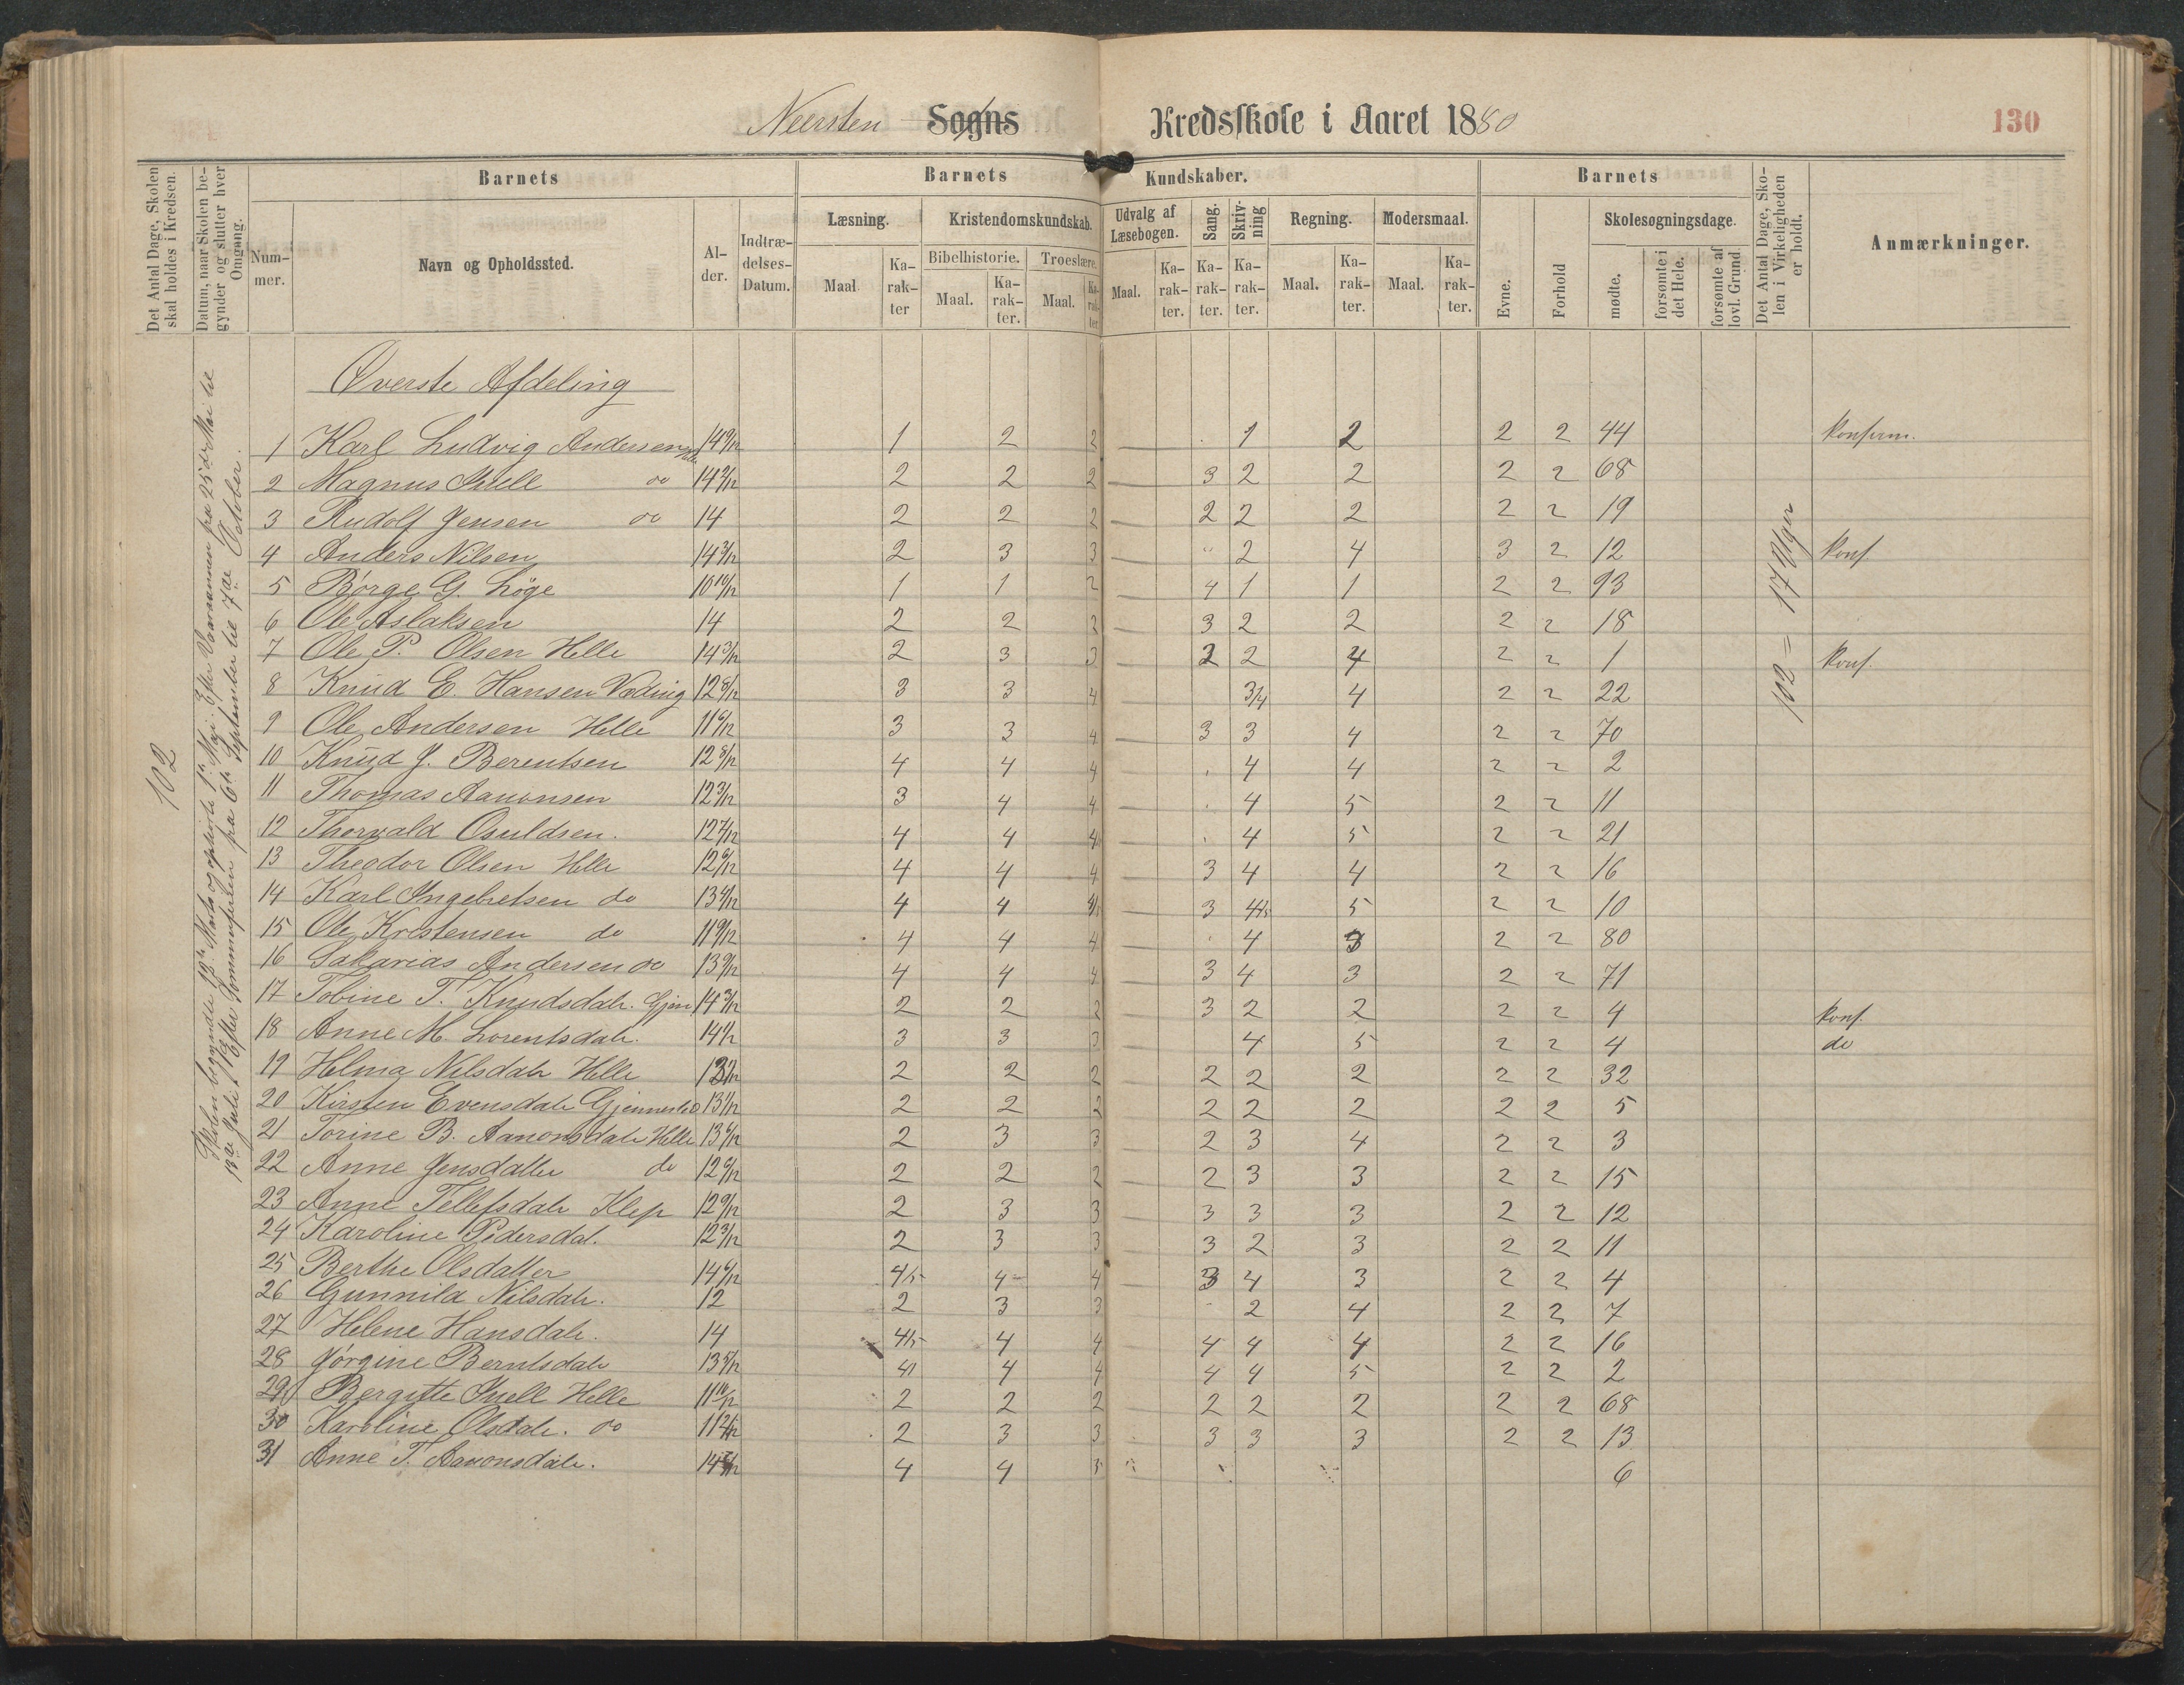 Neersten Sogns Kredsskole i Aaret 1880 130
Det Antal Dage, Skolen skal holdes i Kredsen.
Datum, naar Skolen begynder og slutter hver Omgang.
Barnets
Barnets Kundskaber.
Barnets
Det Antal Dage, Skolen i Virkeligheden er holdt.
Anmærkninger.
Nummer.
Navn og Opholdssted.
Alder.
Indtrædelses-Datum.
Læsning.
Kristendomskundskab.
Udvalg af Læsebogen.
Sang.
Skrivning
Regning.
Modersmaal.
Skolesøgningsdage.
Bibelhistorie.
Troeslære.
Maal Karakter Maal. Karakter. Maal. Karakter Maal. Karakter. Karakter. Karakter. Maal. Karakter. Maal. Karakter.
Evne. Forhold mødte. forsømte i det Hele. forsømte af lovl. Grund
102
102 = 17 Uger
Øverste Afdeling
1 Karl Ludvig Andersen Helle 14 9/12 1 2 2 — 1 2 2 2 44 konfirm.
2 Magnus Juell do 14 2/12 2 2 2 — 3 2 2 2 2 68
3 Rudolf Jensen do 14 2 2 2 — 2 2 2 2 2 19
4 Anders Nilsen 14 3/12 2 3 3 — " 2 4 3 2 12 konf.
5 Børge G. Løge 10 10/12 1 1 2 — 4 1 1 2 2 93
6 Ole Aslaksen 14 2 2 2 — 3 2 2 2 2 18
7 Ole P. Olsen Helle 14 3/12 2 3 3 — 2 2 4 2 2 1 konf.
8 Knud E. Hansen Væding 12 8/12 3 3 4 — 3/4 4 2 2 22
9 Ole Andersen Helle 11 6/12 3 3 4 — 3 3 4 2 2 70
10 Knud J. Berentsen 12 8/12 4 4 4 — 4 4 2 2 2
11 Thomas Aanonsen 12 3/12 3 4 4 — 4 5 2 2 11
12 Thorvald Osuldsen. 12 7/12 4 4 4 — 4 5 2 2 21
13 Theodor Olsen Helle 12 6/12 4 4 4 — 3 4 4 2 2 16
14 Karl Ingebretsen do 13 4/12 4 4 4/5 — 3 4/5 5 2 2 10
15 Ole Kristensen do 11 9/12 4 4 4 — 4 3 2 2 80
16 Sakarias Andersen do 13 9/12 4 4 4 — 3 4 3 2 2 71
17 Tobine T. Knudsdatr. Gjen 14 3/12 2 2 2 — 3 2 2 2 2 4 konf.
18 Anne M. Lorentsdatr. 14 1/2 3 3 3 — 4 5 2 2 4 do
19 Helma Nilsdatr Helle 2 2 2 — 2 2 2 2 2 32
20 Kirsten Evensdatr 13 1/12 2 2 2 — 2 2 2 2 2 5
21 Torine B. Aanonsdatr Helle 13 6/12 2 3 3 — 2 3 4 2 2 3
22 Anne Jensdatter do 12 6/12 2 2 2 — 2 3 3 2 2 15
23 Anne Tellefsdatr Klep 12 9/12 2 3 3 — 3 3 3 2 2 12
24 Karoline Pedersdat. 12 3/12 2 3 3 — 3 2 3 2 2 11
25 Berthe Olsdatter 14 6/12 4/5 4 4 — 3 4 3 2 2 4
26 Gunnild Nilsdatr. 12 2 3 3 — 2 4 2 2 7
27 Helene Hansdatr. 14 4/5 4 4 — 4 4 4 2 2 16
28 Jørgine Berntsdatr 13 5/12 4 4 4 — 4 4 5 2 2 2
29 Bergitte Juell Helle 11 10/12 2 2 2 — 2 2 2 2 2 68
30 Karoline Olsdatr. do 2 3 3 — 3 3 3 2 2 13
31 Anne T. Aanonsdatr. 4 4 3 6